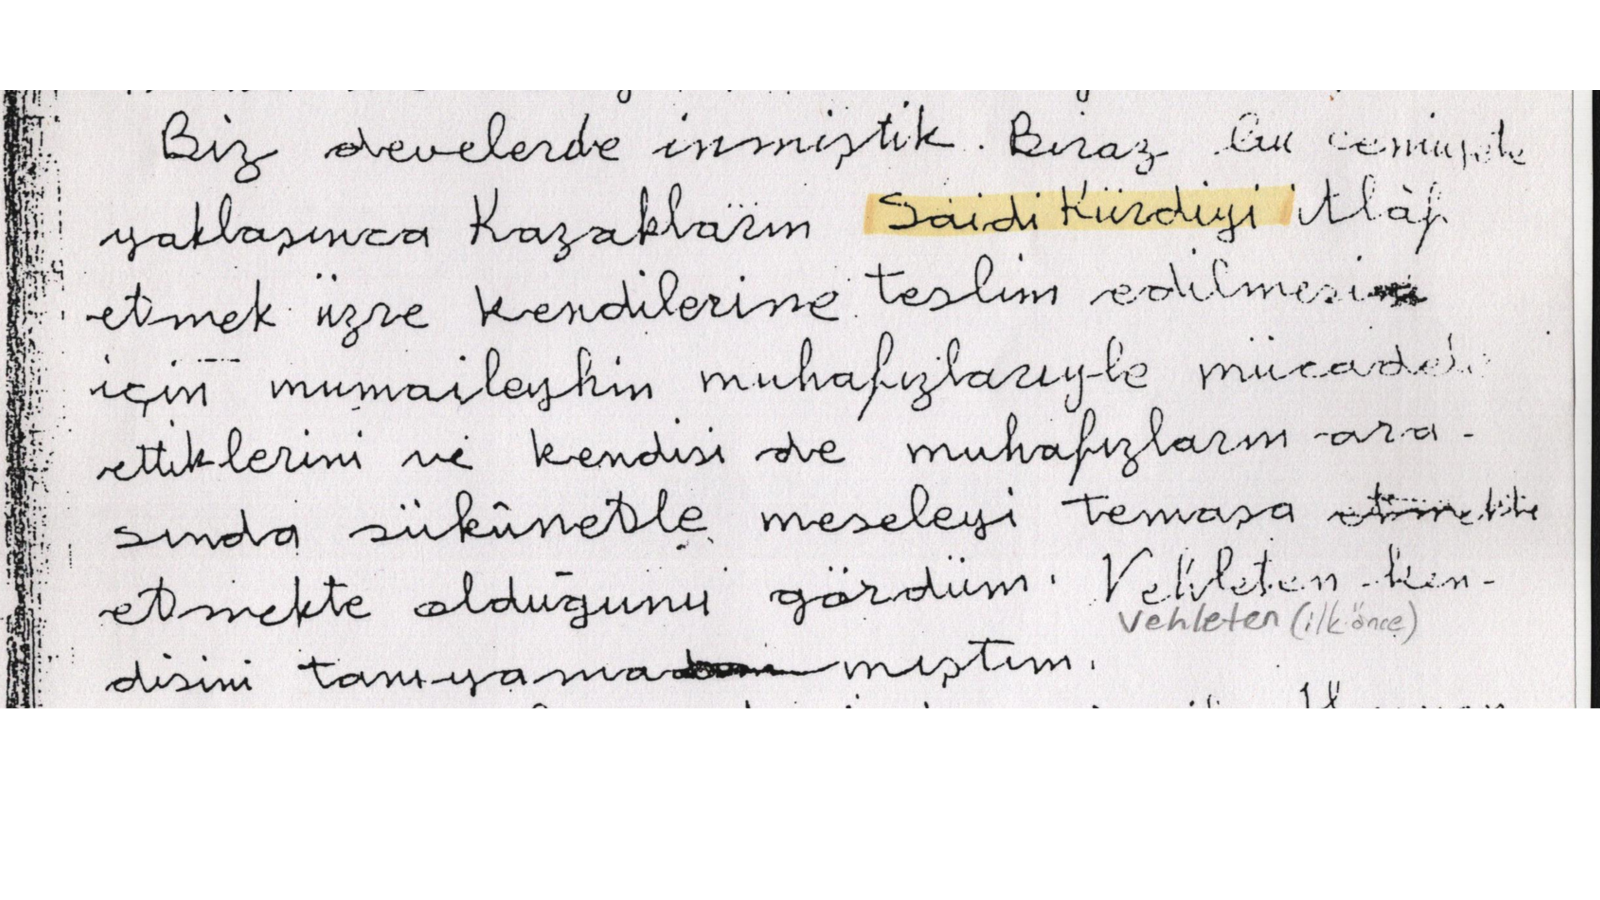 Biz develerde inmiştik. Biraz bu cemiyete
yaklaşınca Kazakların Saidi Kürdiyi itlâf
etmek üzre kendilerine teslim edilmesi
için mumaileyhin muhafızlarıyle mücadele
ettiklerini ve kendisi de muhafızların ara-
sında sükûnetle meseleyi temaşa etmekte
etmekte olduğunu gördüm. Vehleten ken-
vehleten (ilk önce)
disini tanıyamamıştım.